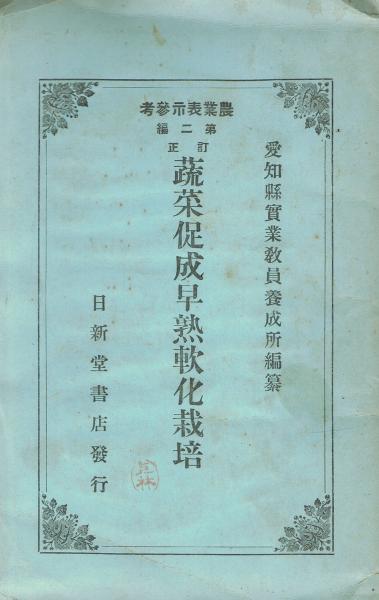 愛知縣實業敎員養成所編纂
農業表示參考
第二編
訂正
蔬菜促成早熟軟化栽培
日新堂書店發行